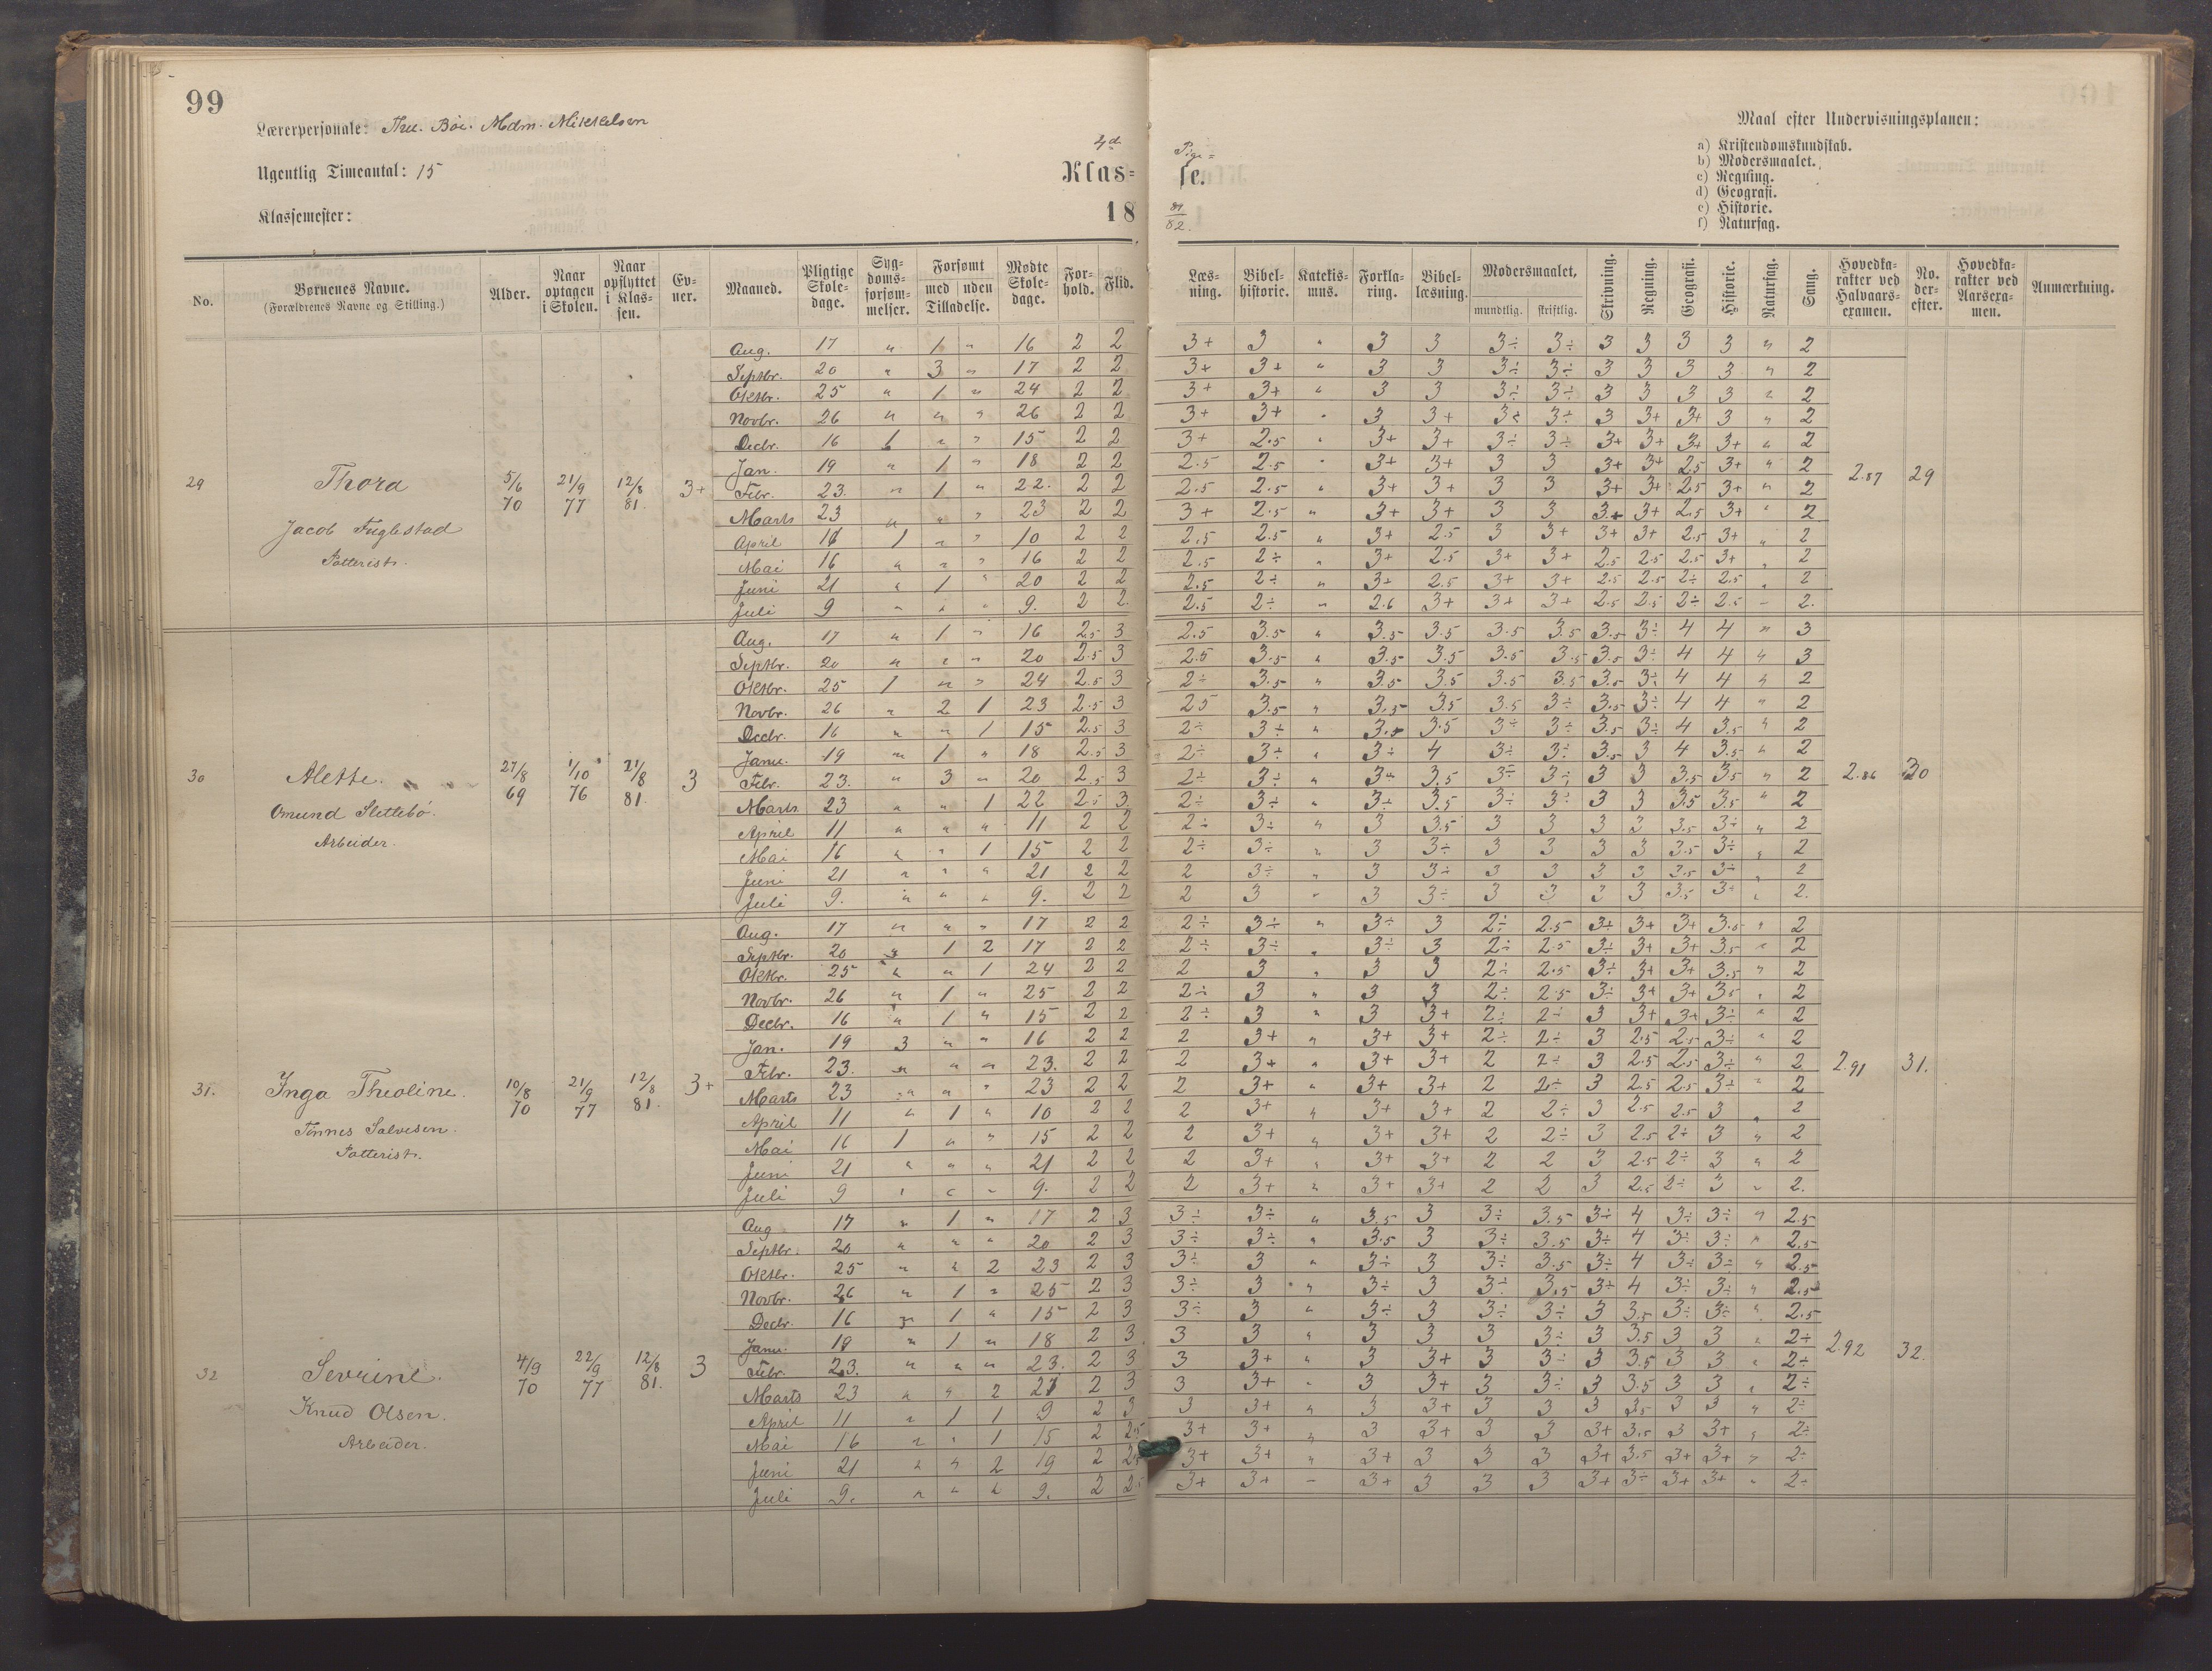 99
Lærerpersonale: Thu. Böe. Mdm. Mikkelsen
Ugentlig Timeantal: 15
Klassemester:
4de Pige=
Klas= se.
18 81/82.
Maal efter Undervisningsplanen:
a) Kristendomskundskab.
b) Modersmaalet.
c) Regning.
d) Geografi.
e) Historie.
f) Naturfag.
No. Børnenes Navne. (Forældrenes Navne og Stilling.) Alder. Naar optagen i Skolen. Naar opflyttet i Klassen. Evner. Maaned. Pligtige Skoledage. Sygdomsforsømmelser. Forsømt med uden Tilladelse. Mødte Skoledage. Forhold. Flid. Læsning. Bibelhistorie. Katekismus. Forklaring. Bibellæsning. Modersmaalet, mundtlig. skriftlig. Skrivning. Regning. Geografi. Historie. Naturfag. Sang. Hovedkarakter ved Halvaarsexamen. No. derefter. Hovedkarakter ved Aarsexamen. Anmærkning.
29 Thora Jacob Fuglestad Potterist. 5/6 70 21/9 77 12/8 81. 3+ 2.87 29
Aug. 17 " 1 " 16 2 2 3+ 3 " 3 3 3÷ 3÷ 3 3 3 3 " 2
Septbr. 20 " 3 " 17 2 2 3+ 3+ " 3 3 3÷ 3÷ 3 3 3 3 " 2
Oktbr. 25 " 1 " 24 2 2 3+ 3+ " 3 3 3÷ 3÷ 3 3 3 3 " 2
Novbr. 26 " " " 26 2 2 3+ 3+ " 3 3+ 3÷ 3÷ 3 3+ 3+ 3 " 2
Decbr. 16 1 " " 15 2 2 3+ 2.5 " 3+ 3+ 3÷ 3÷ 3+ 3+ 3+ 3+ " 2
Jan. 19 " 1 " 18 2 2 2.5 2.5 " 3+ 3+ 3 3 3+ 3+ 2.5 3+ " 2
Febr. 23. " 1 " 22. 2 2 2.5 2.5 " 3+ 3+ 3 3 3+ 3+ 2.5 3+ " 2
Marts 23 " " " 23 2 2 3+ 2.5 " 3+ 3+ 3 3 3+ 3+ 2.5 3+ " 2
April 11 1 " " 10 2 2 2.5 2.5 " 3+ 2.5 3 3+ 3+ 3+ 2.5 3+ " 2
Mai 16 " " " 16 2 2 2.5 2÷ " 3+ 2.5 3+ 3+ 2.5 2.5 2.5 3+ " 2
Juni 21 " 1 " 20 2 2 2.5 2÷ " 3+ 2.5 3+ 3+ 2.5 2.5 2÷ 2.5 " 2
Juli 9 " " " 9. 2 2. 2.5 2÷ " 2.6 3+ 3+ 3+ 2.5 2.5 2÷ 2.5 - 2.
30 Alette. Omund Slettebö. Arbeider. 27/8 69 1/10 76 21/8 81. 3 2.86 30
Aug. 17 " 1 " 16 2.5 3 2.5 3.5 " 3.5 3.5 3.5 3.5 3.5 3÷ 4 4 " 3
Septbr. 20 " " " 20 2.5 3 2.5 3.5 " 3.5 3.5 3.5 3.5 3.5 3÷ 4 4 " 3
Oktbr. 25 1 " " 24 2.5 3 2÷ 3.5 " 3.5 3.5 3.5 3.5 3.5 3÷ 4 4 " 2
Novbr. 26 " 2 1 23 2.5 3 25 3.5 " 3.5 3.5 3.5 3÷ 3.5 3÷ 4 4 " 2
Decbr. 16 " " 1 15 2.5 3 2÷ 3÷ " 3.5 3.5 3÷ 3÷ 3.5 3÷ 4 3.5 " 2
Janu. 19 " 1 " 18 2.5 3 2÷ 3÷ " 3÷ 4 3÷ 3÷ 3.5 3 4 3.5 " 2
Febr. 23. " 3 " 20 2.5 3 2÷ 3÷ " 3÷ 3.5 3÷ 3÷ 3 3 3.5 3.5 " 2
Marts 23 " " 1 22 2.5 3 2÷ 3÷ " 3÷ 3.5 3÷ 3÷ 3 3 3.5 3.5 " 2
April 11 " " " 11 2 2 2÷ 3÷ " 3 3.5 3 3 3 3 3.5 3÷ " 2
Mai 16 " " 1 15 2 2 2÷ 3÷ " 3 3÷ 3 3 3 3 3.5 3÷ " 2
Juni 21 " " " 21 2 2 2 3÷ " 3 3÷ 3 3 3 3 3.5 3÷ " 2
Juli 9. " " " 9. 2 2 2 3 " 3 3÷ 3 3 3 3 3.5 3÷ " 2.
31. Inga Theoline. Tönnes Salvesen. Potterist. 10/8 70 21/9 77 12/8 81. 3+ 2.91 31.
Aug. 17 " " " 17 2 2 2÷ 3÷ " 3÷ 3 2÷ 2.5 3÷ 3+ 3+ 3.5 " 2
Septbr. 20 " 1 2 17 2 2 2÷ 3÷ " 3÷ 3 2÷ 2.5 3÷ 3+ 3+ 3.5 " 2
Oktbr. 25 " " 1 24 2 2 2 3 " 3 3 2÷ 2.5 3÷ 3+ 3+ 3.5 " 2
Novbr. 26 " 1 " 25 2 2 2÷ 3 " 3 3 2÷ 2.5 3÷ 3+ 3+ 3.5 " 2
Decbr. 16 " 1 " 15 2 2 2÷ 3 " 3 3+ 2÷ 2÷ 3 3+ 3+ 3÷ " 2
Jan. 19 3 " " 16 2 2 2 3+ " 3+ 3+ 2÷ 2÷ 3 2.5 2.5 3÷ " 2
Febr. 23. " " " 23. 2 2 2 3+ " 3+ 3+ 2 2÷ 3 2.5 2.5 3÷ " 2
Marts 23 " " " 23 2 2 2 3+ " 3+ 3+ 2 2÷ 3 2.5 2.5 3÷ " 2
April 11 " 1 " 10 2 2 2 3+ " 3+ 3+ 2 2÷ 3 2.5 2.5 3 " 2
Mai 16 1 " " 15 2 2 2 3+ " 3+ 3+ 2 2÷ 3 2.5 2÷ 3 " 2
Juni 21 " " " 21 2 2 2 3+ " 3+ 3+ 2 2 3 2.5 2÷ 3 " 2
Juli 9 " " " 9. 2 2 2 3+ " 3+ 3+ 2 2 3 2.5 2÷ 3 " 2.
32 Sevrine. Knud Olsen. Arbeider. 4/9 70 22/9 77 12/8 81. 3 2.92 32.
Aug 17 " 1 " 17 2 3 3÷ 3÷ " 3.5 3 3÷ 3.5 3÷ 4 3÷ 3÷ " 2.5
Septbr. 20 " " " 20 2 3 3÷ 3÷ " 3.5 3 3÷ 3.5 3÷ 4 3÷ 3÷ " 2.5
Oktbr. 25 " " 2 23 2 3 3÷ 3 " 3÷ 3 3÷ 3.5 3÷ 4 3÷ 3÷ " 2.5
Novbr. 26 " 1 " 25 2 3 3÷ 3 " 3÷ 3 3÷ 3.5 3÷ 4 3÷ 3÷ " 2.5
Decbr. 16 " 1 " 15 2 3 3÷ 3 " 3÷ 3 3÷ 3÷ 3 3.5 3÷ 3÷ " 2.5
Janu. 19 " 1 " 18 2 3. 3 3 " 3 3 3 3÷ 3 3.5 3 3 " 2÷
Febr. 23. " " " 23. 2 3 3 3+ " 3 3+ 3 3÷ 3 3.5 3 3 " 2÷
Marts 23 " " 2 21 2 3 3 3+ " 3 3+ 3 3÷ 3 3.5 3 3 " 2÷
April 11 " 1 1 9 2 3 3 3+ " 3 3+ 3 3 3 3.5 3 3 " 2÷
Mai 16 " " 1 15 2 2.5 3+ 3+ " 3 3+ 3 3 3+ 3.5 3 3+ " 2÷
Juni 21 " " 2 19 2 2.5 3+ 3+ " 3+ 3 3 3 3+ 3.5 3+ 3+ " 2÷
Juli 9. " " " 9. 2 2.5 3+ 3+ - 3+ 3 3 3 3+ 3÷ 3+ 3+ " 2÷